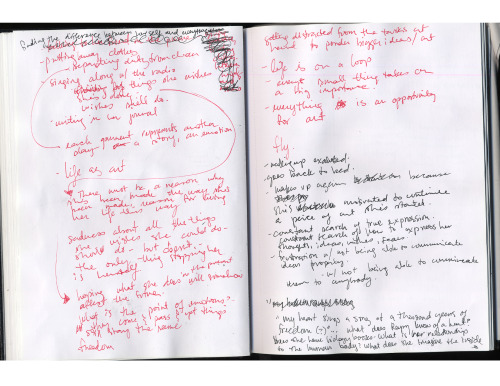 finding the difference between herself and everyone
- putting away clothes
separating dirty from clean
- singing along w/ the radio
things she wishes
she's done,
wishes she'll do.
- writing in her journal
each garment represents another
day - a story, an emotion
- life as art
There must be a reason why
she's been made the way she's
been made, reason for living
her life this way
Sadness about all the things
she wishes she could do -
should do - but doesn't.
the only thing stopping her
is herself
in the present
hoping what she does will somehow
affect the future.
what is the point of emotions?
they come & pass & yet things
stay the same
freedom
getting distracted from the tasks at
hand to ponder bigger ideas / art
- life is on a loop
- every small thing takes on
a big importance.
- everything is an opportunity
for art
fly.
- wakes up exhausted.
- goes back to bed.
- wakes up again because
she's motivated to continue
a piece of art she's started.
- constant search of true expression -
constant search of how to express her
thoughts, ideas, wishes, fears
- frustration w/ not being able to communicate
ideas properly
- w/ not being able to communicate
to anybody
"my heart sings a song of a thousand years of
freedom (?)" what does Raejoy know of a heart?
Does she have biology books? What is her relationship
to the human body? What does she imagine the inside